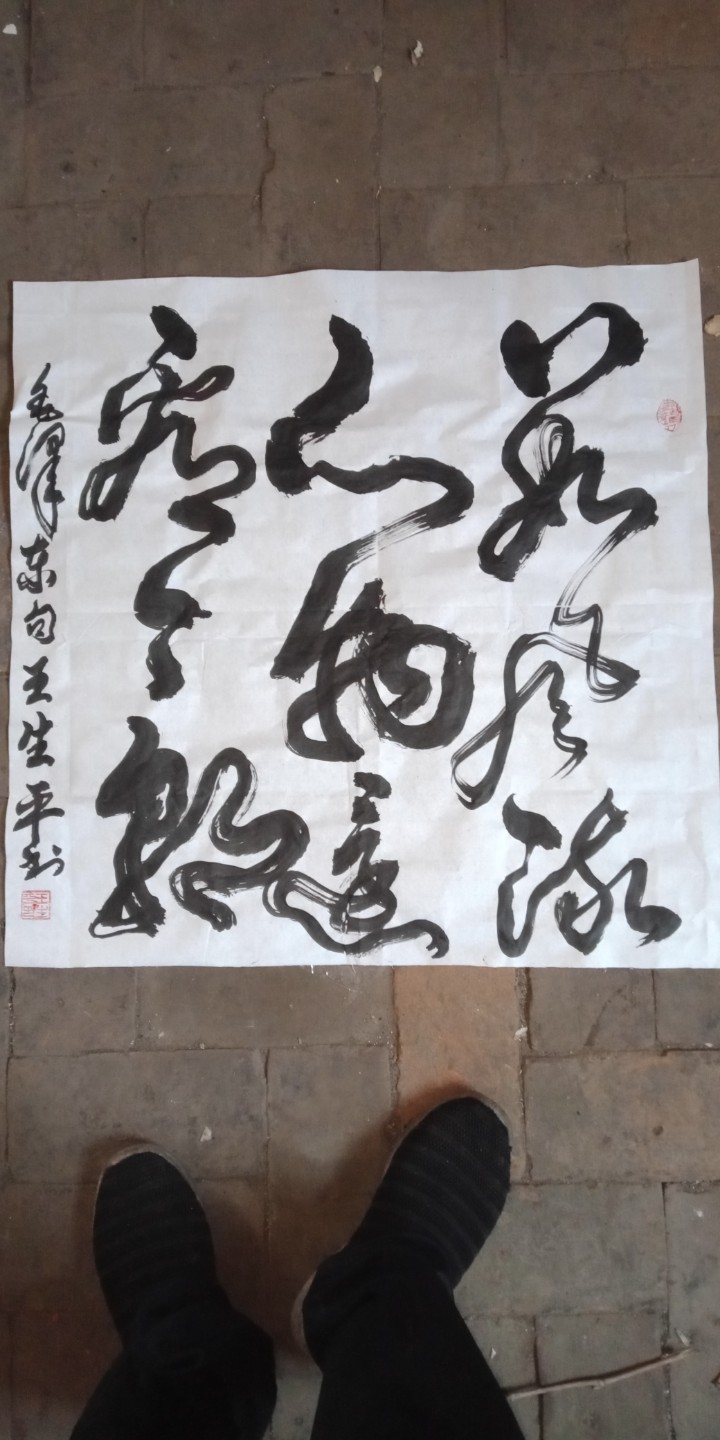 数风流
人物还
看今朝
毛泽东句王生平书